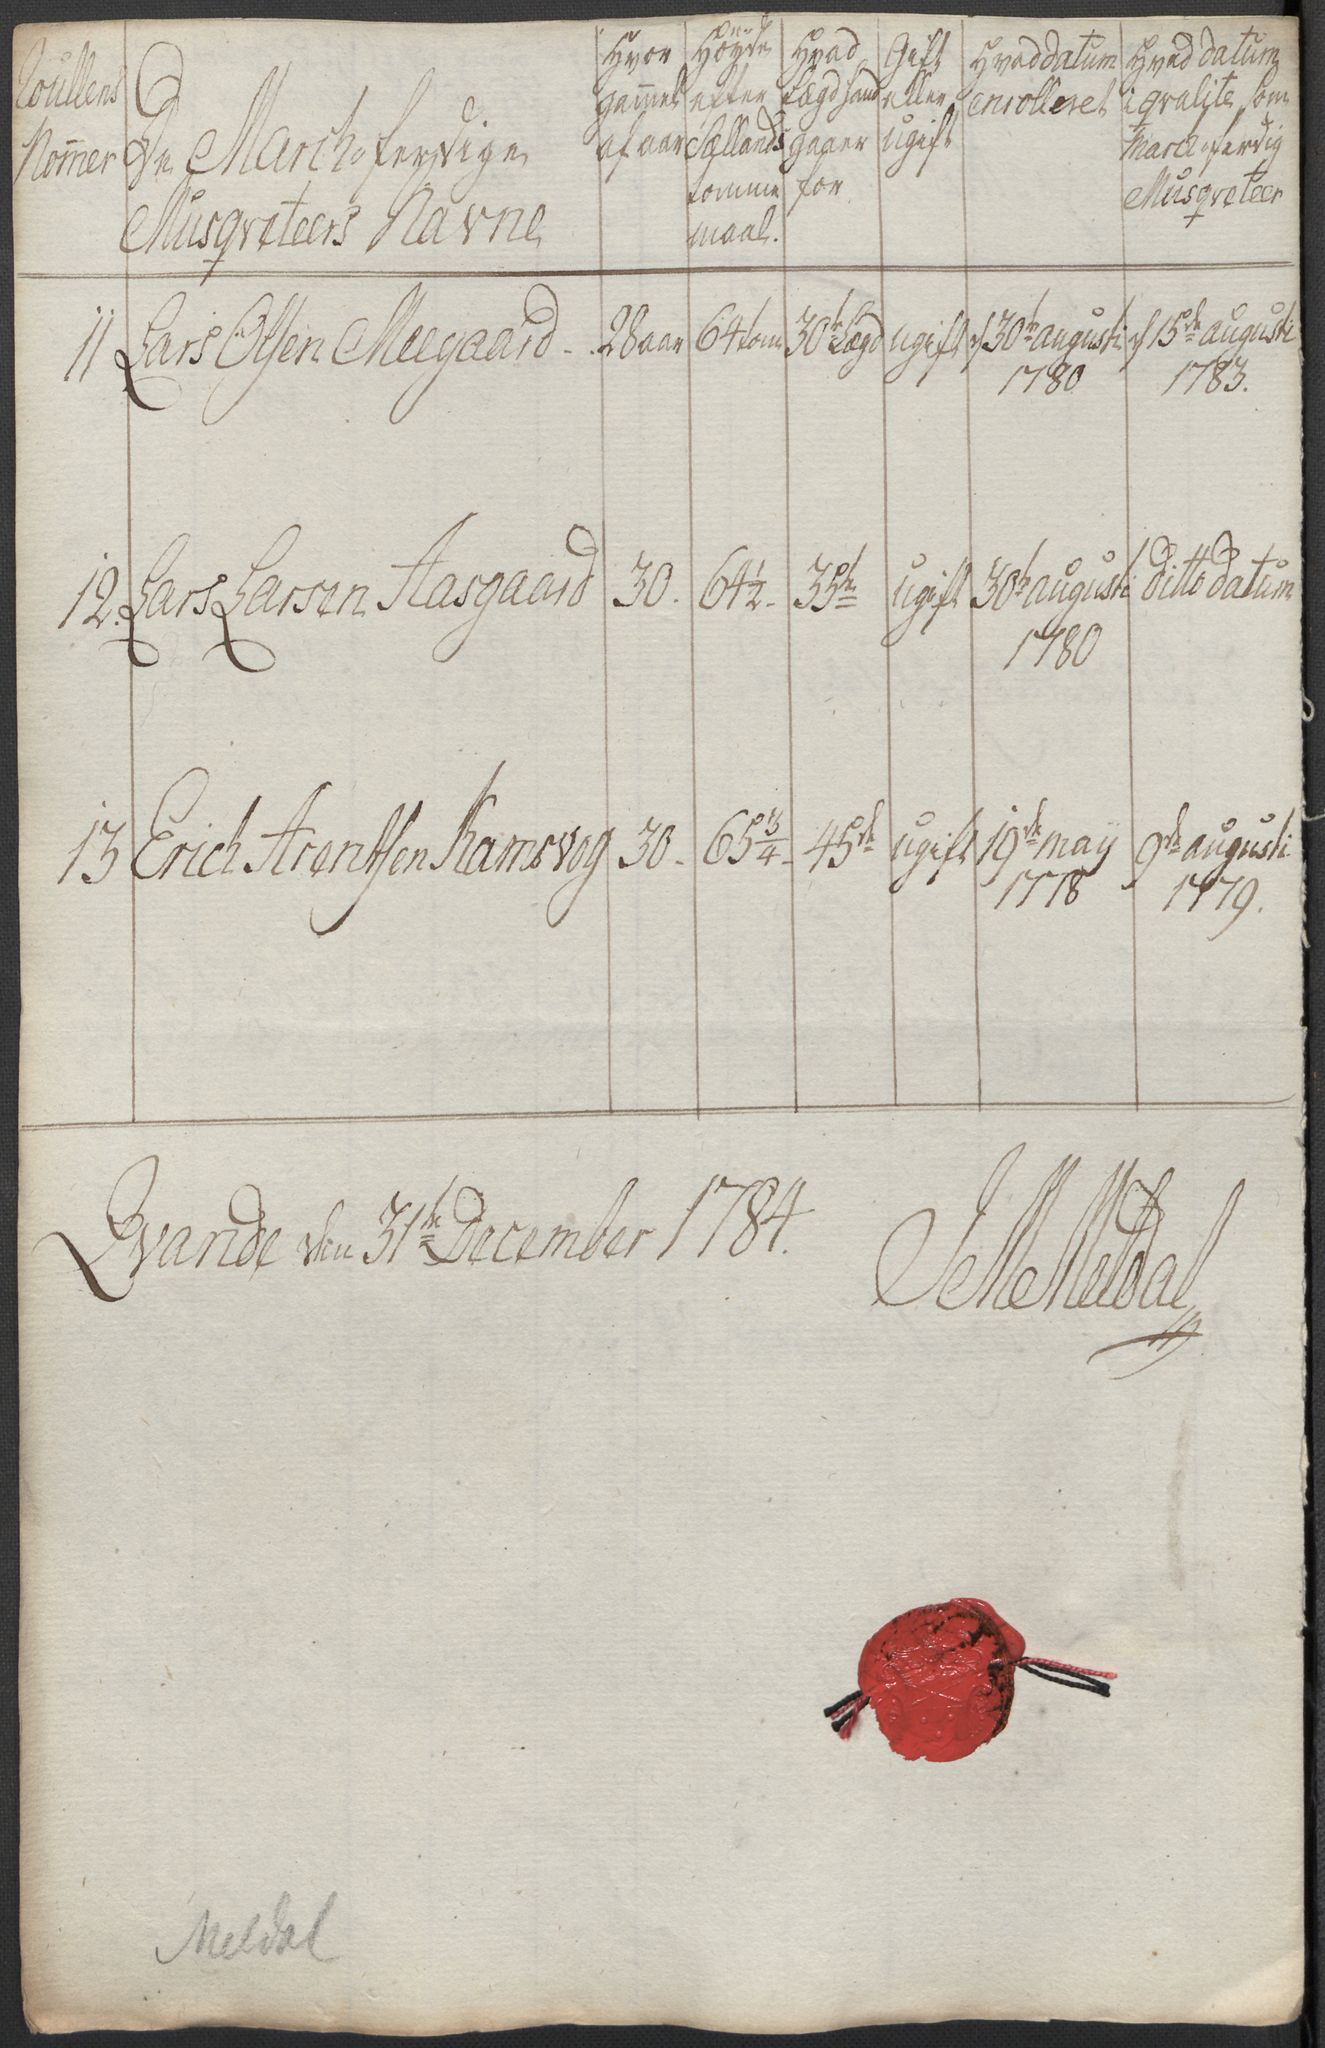 Roullens Nom̄er
De March-ferdige Musqveteers Navne
Hvor gam̄el af aar
Høyde efter Sællands tomme maal.
Hvad Lægd hand gaaer for
Gift eller ugift
Hvad datum enrolleret
Hvad datum i qvalite som March-ferdig Musqveteer
11 Lars Olsen Meegaard - 28 aar 64 tom 30te Lægd ugift d 30te augusti 1780 d 15de augusti 1783.
12. Lars Larsen Aasgaard 30. 64½- 35te ugift 30te augusti 1780 ditto datum
13 Erich Arentsen Ramsvog 30- 65¾- 45de ugift 19de may 1778 9de augusti 1779.
Qvande den 31te December 1784.
Meldal
Meldal